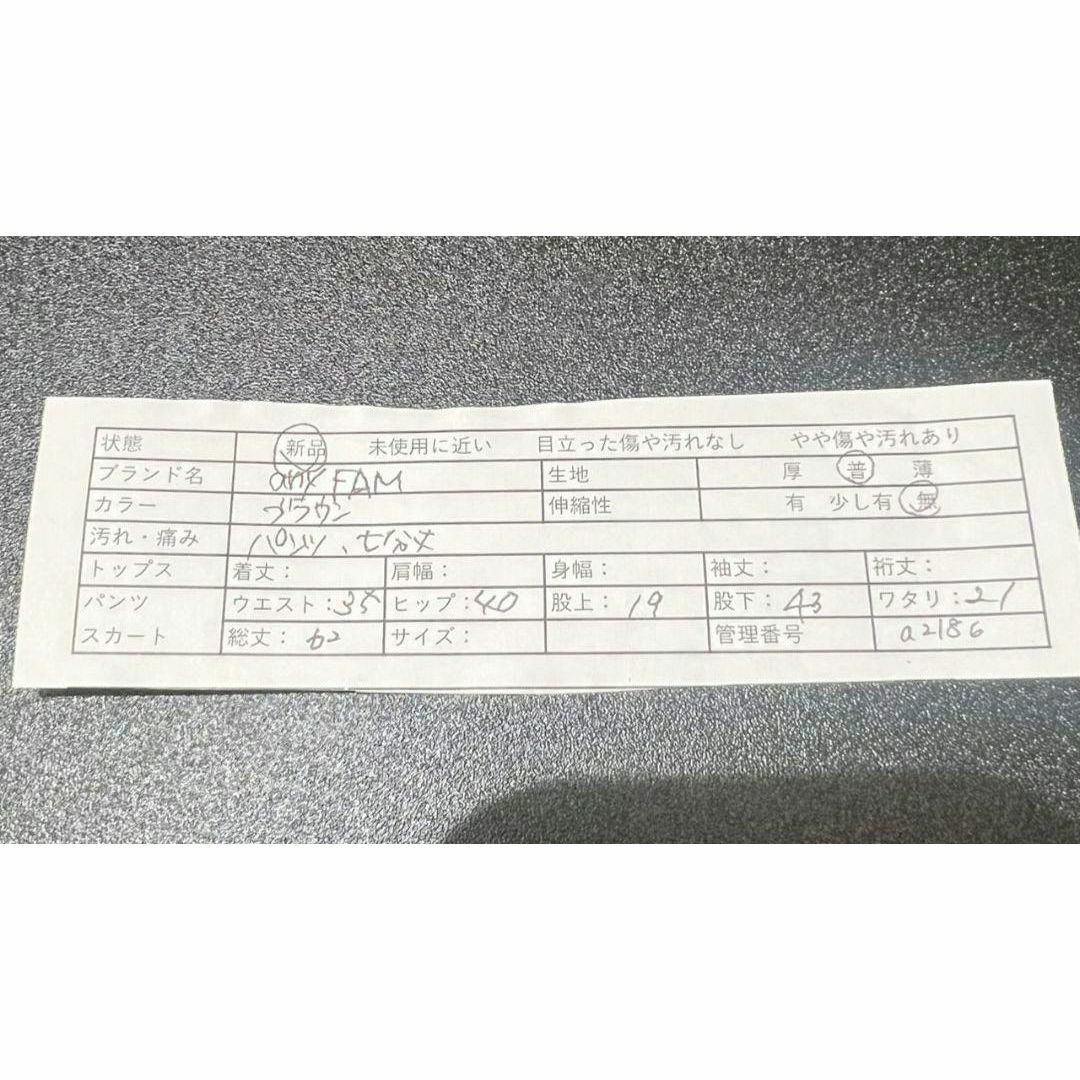 状態 新品 未使用に近い 目立った傷や汚れなし やや傷や汚れあり
ブランド名 any FAM 生地 厚 普 薄
カラー ブラウン 伸縮性 有 少し有 無
汚れ・痛み パンツ、七分丈
トップス 着丈： 肩幅： 身幅： 袖丈： 裄丈：
パンツ ウエスト：35 ヒップ：40 股上：19 股下：43 ワタリ：21
スカート 総丈：62 サイズ： 管理番号 a2186